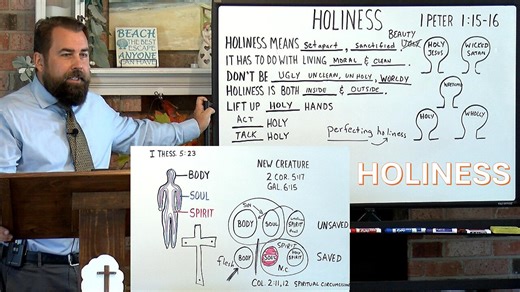 HOLINESS
I PETER 1:15-16
BEAUTY
HOLINESS MEANS Setapart, Sanctified
IT HAS TO DO WITH LIVING MORAL & CLEAN.
DON'T BE UGLY UNCLEAN, UN HOLY, WORLDY
HOLINESS IS BOTH INSIDE & OUTSIDE.
LIFT UP HOLY HANDS
ACT HOLY
TALK HOLY
perfecting holiness
HOLY JESUS
WICKED SATAN
HOLY
WHOLLY
BEACH
THE BEST
ESCAPE
ANYONE
CAN HAVE
HOLINESS
I THESS. 5:23
BODY
SOUL
SPIRIT
NEW CREATURE
2 COR. 5:17
GAL. 6:15
SIN
BODY
SOUL
SPIRIT
UNSAVED
SPIRIT
flesh
BODY
SOUL
SPIRIT
N.C.
SAVED
COL. 2:11,12 SPIRITUAL CIRCUMCISION